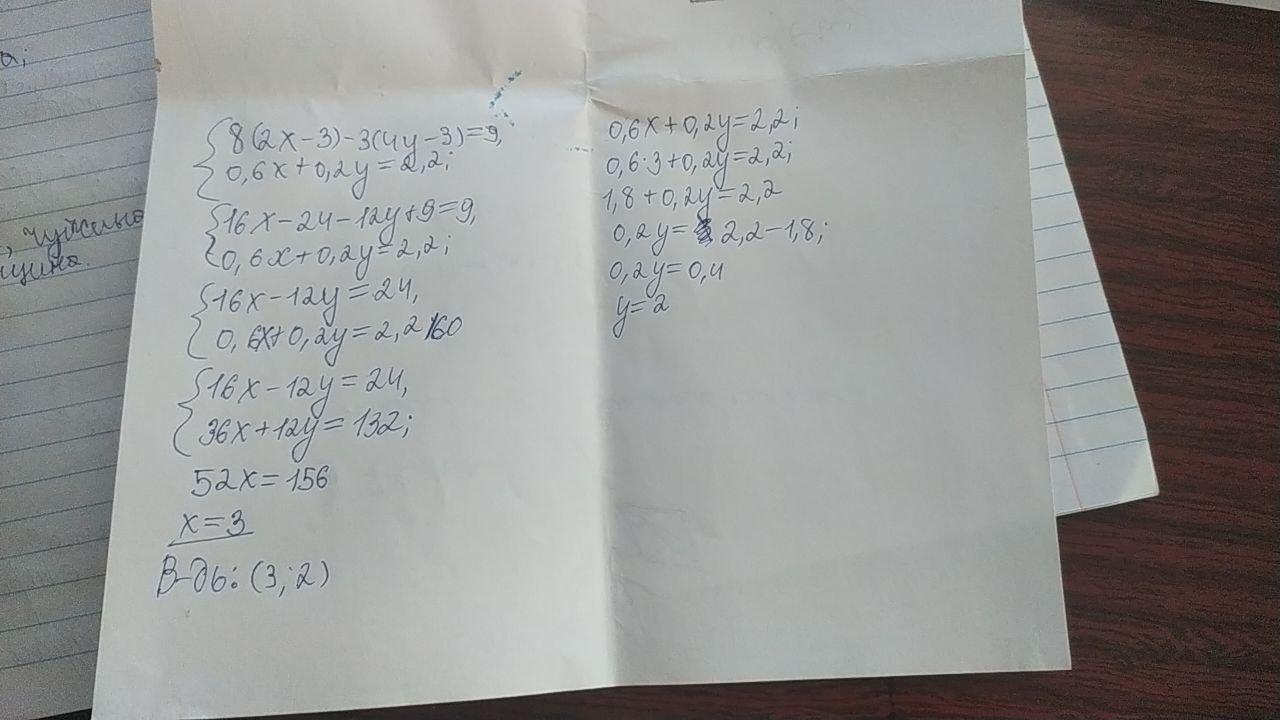 а;
, чужина
щина.
8(2x-3)-3(4y-3)=9,
0,6x+0,2y=2,2;
16x-24-12y+9=9,
0,6x+0,2y=2,2;
16x-12y=24,
0,6x+0,2y=2,2 |60
16x-12y=24,
36x+12y=132;
52x=156
x=3
В-дь: (3; 2)
0,6x+0,2y=2,2;
0,6·3+0,2y=2,2;
1,8+0,2y=2,2
0,2y= 2,2-1,8;
0,2y=0,4
y=2